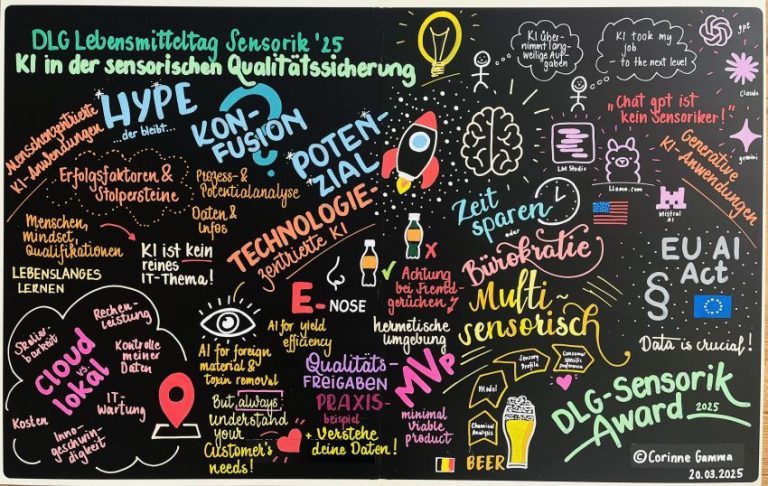 DLG Lebensmitteltag Sensorik '25
KI in der sensorischen Qualitätssicherung
KI über-
nimmt lang-
weilige Auf-
gaben
KI took my
job
- to the next level
gpt
Claude
gemini
"Chat gpt ist
kein Sensoriker!"
Generative
KI-Anwendungen
LM Studio
Llama.com
Mistral
AI
Menschenzentrierte
KI-Anwendungen
HYPE
...der bleibt...
KON-
FUSION
?
POTEN-
ZIAL
Erfolgsfaktoren &
Stolpersteine
Prozess- &
Potentialanalyse
Daten &
Infos
TECHNOLOGIE-
zentrierte KI
Menschen,
Mindset,
Qualifikationen
KI ist kein
reines
IT-Thema!
LEBENSLANGES
LERNEN
Zeit
sparen
oder
Bürokratie
EU AI
Act
§
Data is crucial!
E-NOSE
Achtung
bei Fremd-
gerüchen
hermetische
umgebung
Multi-
sensorisch
Cloud
vs.
lokal
Skalier-
barkeit
Rechen-
leistung
Kontrolle
meiner
Daten
IT-
Wartung
Inno-
geschwin-
digkeit
Kosten
AI for foreign
material &
toxin removal
AI for yield
efficiency
But always
understand
your
Customer's
needs!
Qualitäts-
FREIGABEN
PRAXIS-
beispiel
+ Verstehe
deine Daten!
MVP
minimal
viable
product
Chemical
Analysis
Model
Sensory
Profile
Consumer
specific
preference
BEER
DLG-Sensorik
Award 2025
©Corinne Gamma
20.03.2025